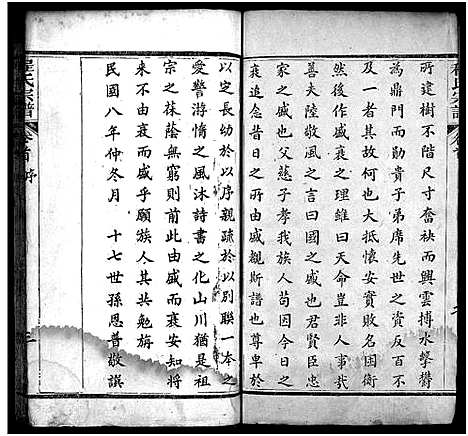 所建樹不階尺寸奮袂而興雲搏水擊鬱
為鼎門而貴子弟席先世之資反百不
及一者何人也大抵懷安實敗名困衡
然後作盛衰之理雖曰天命豈非人事哉
善夫陸敬輿之言曰國之盛也君賢臣忠
家之盛也父慈子孝我族人苟因今日之
衰追念昔日之所由盛觀斯譜也尊卑於
以定長幼於以序親疏於以別聯一本之
愛警游惰之風沐詩書之化山川猶是祖
宗之葆蔭無窮則前此由盛而衰安知將
來不由衰而盛乎願族人其共勉旃
民國八年仲冬月　十七世孫恩普敬譔
程氏宗譜
卷首　序